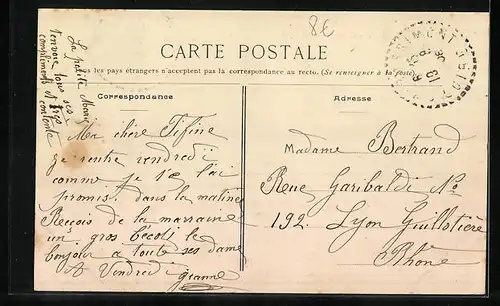 8€
CARTE POSTALE
Tous les pays étrangers n'acceptent pas la correspondance au recto. (Se renseigner à la poste)
Correspondance
Adresse
La petite
t'envoie tous ses
compliments et très
contente
Ma chère Fifine
je rentre vendredi
comme je t'e l'ai
promis. dans la matiné
Reçois de la marraine
un gros bécoti le
bonjour a toute ses dame
A Vendredi Jeanne
Madame Bertrand
Rue Garibaldi No
192. Lyon Guillotière
Rhône